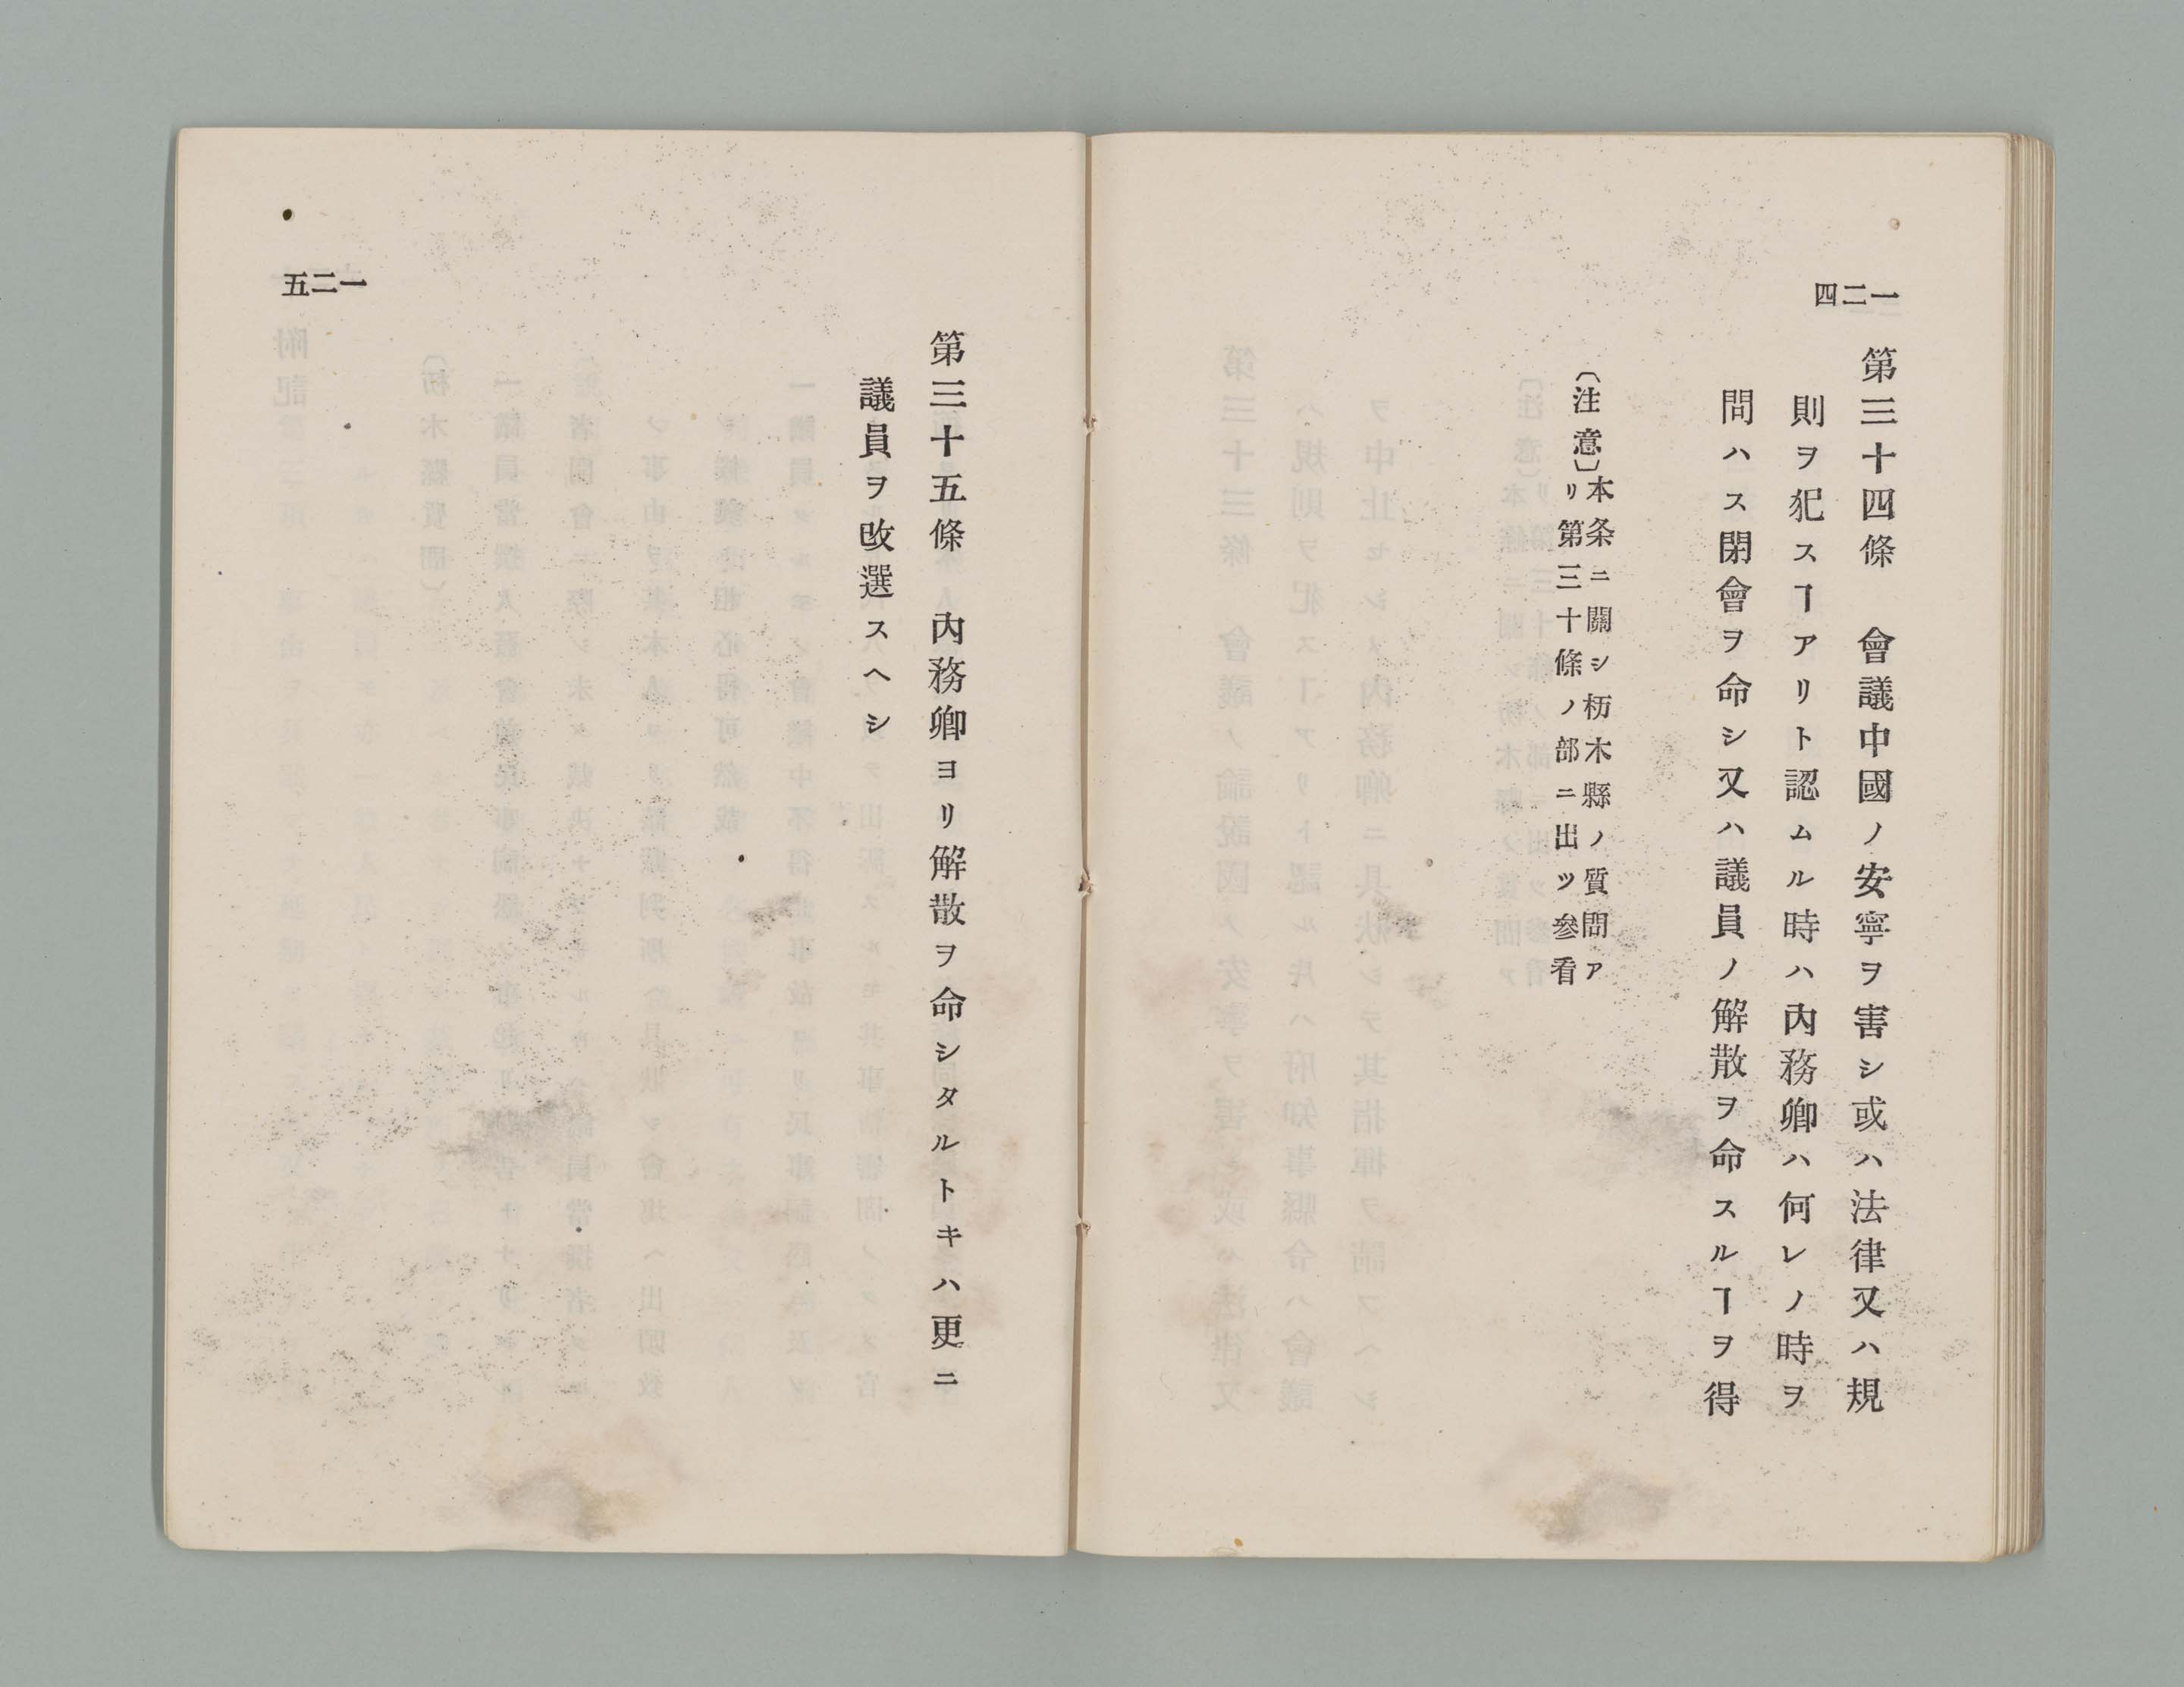 一二四
第三十四條　會議中國ノ安寧ヲ害シ或ハ法律又ハ規
則ヲ犯スヿアリト認ムル時ハ內務卿ハ何レノ時ヲ
問ハス閉會ヲ命シ又ハ議員ノ解散ヲ命スルヿヲ得
〔注意〕本条ニ關シ枥木縣ノ質問ア
リ第三十條ノ部ニ出ツ參看
一二五
第三十五條　內務卿ヨリ解散ヲ命シタルトキハ更ニ
議員ヲ改選スヘシ